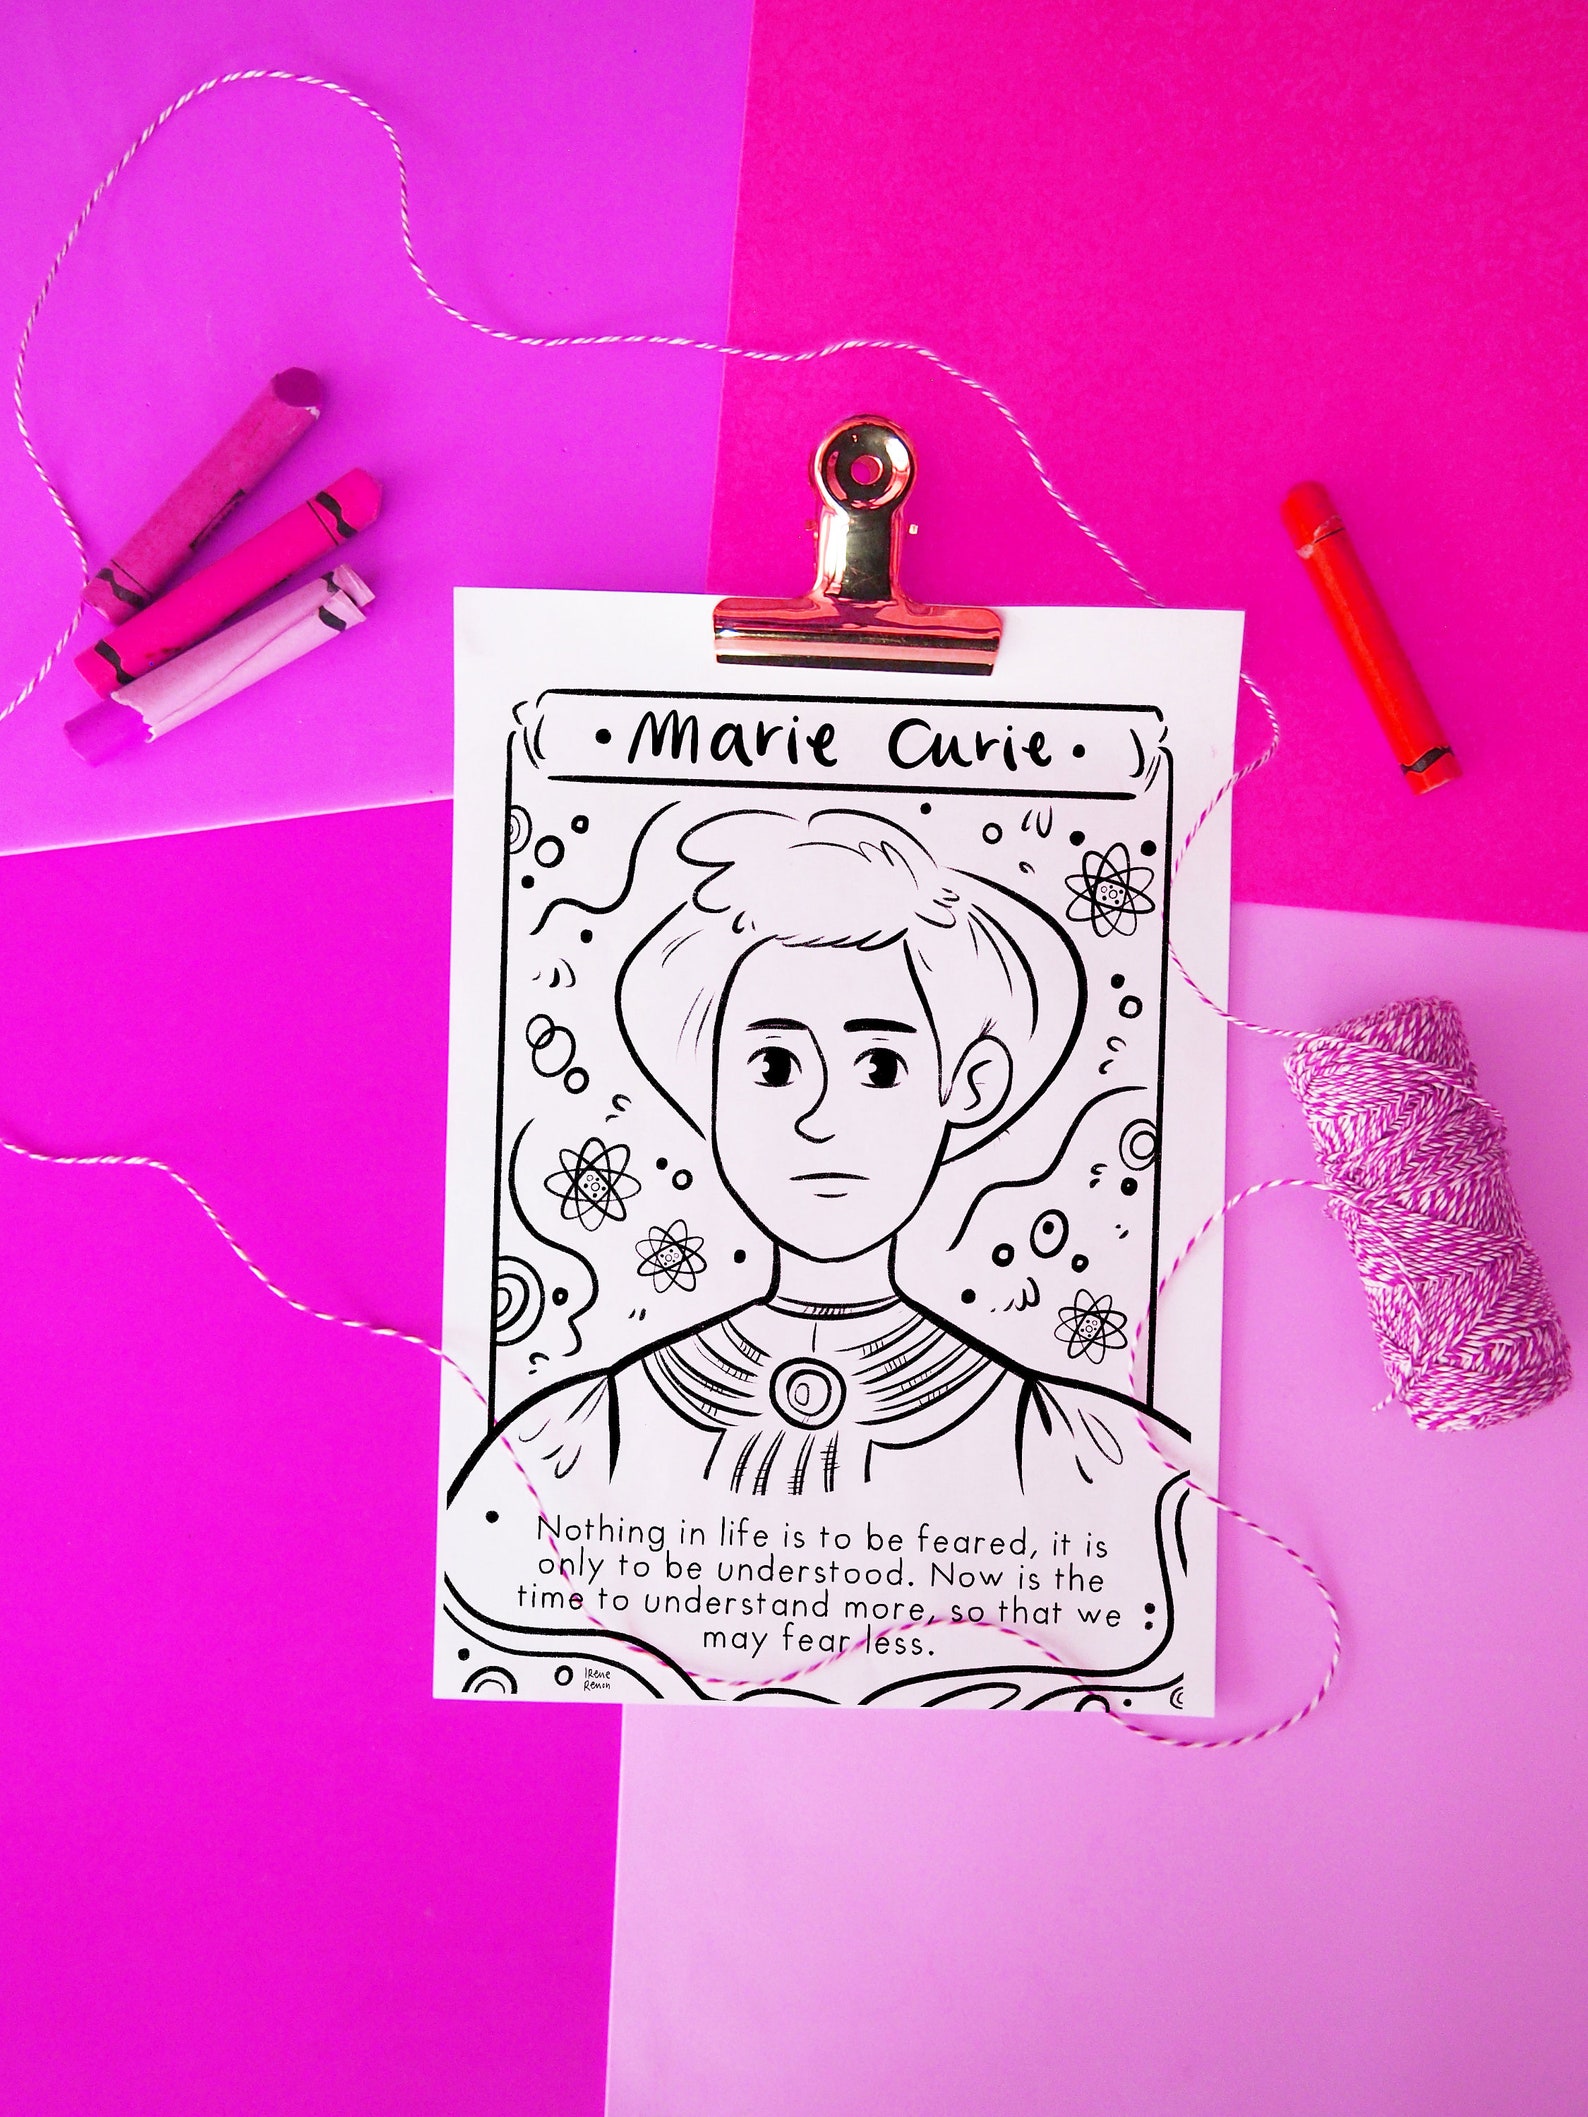 • Marie Curie •
Nothing in life is to be feared, it is
only to be understood. Now is the
time to understand more, so that we
may fear less.
Irene
Renon